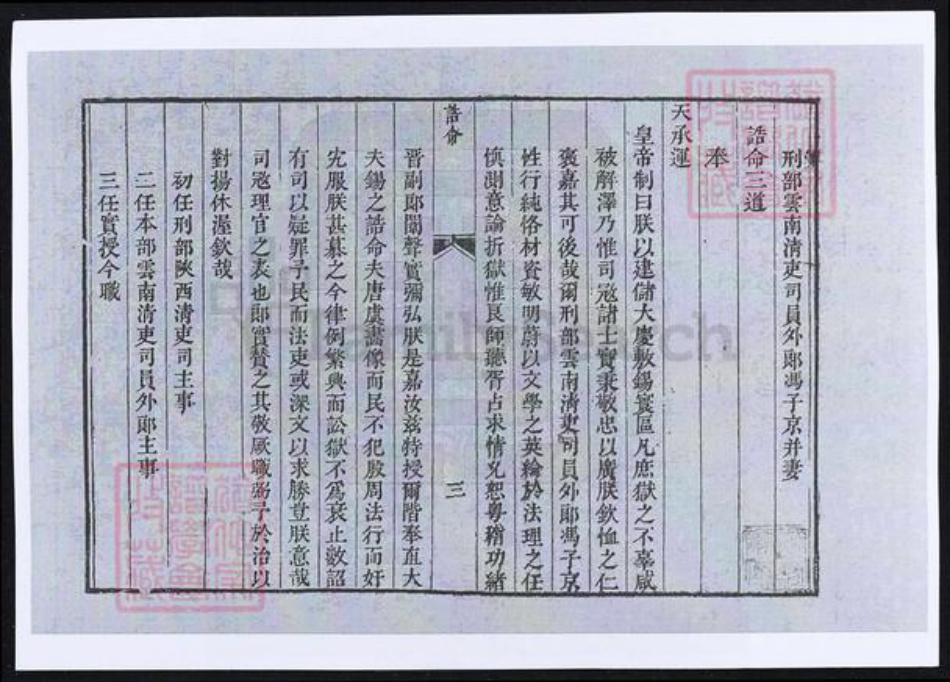 刑部雲南清吏司員外郎馮子京并妻
誥命三道
奉
天承運
皇帝制曰朕以建儲大慶敷錫寰區凡庶獄之不辜咸
被解澤乃惟司寇諸士實秉敬忠以廣朕欽恤之仁
褒嘉其可後哉爾刑部雲南清吏司員外郎馮子京
性行純恪材資敏明蔚以文學之英綸於法理之任
慎測意論折獄惟良師聽胥占求情允恕粵稽功緒
誥命
三
晋副郎闈聲實彌弘朕是嘉汝兹特授爾階奉直大
夫錫之誥命夫唐虞畫像而民不犯殷周法行而奸
宄服朕甚慕之今律例繁興而訟獄不爲衰止數詔
有司以疑罪予民而法吏或深文以求勝豈朕意哉
司寇理官之表也郎實贊之其敬厥職弼予於治以
對揚休渥欽哉
初任刑部陜西清吏司主事
二任本部雲南清吏司員外郎主事
三任實授今職
FamilySearch